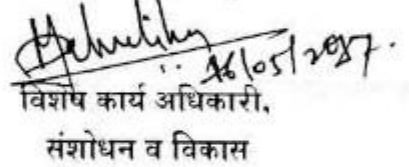 16/05/2017.
विशेष कार्य अधिकारी,
संशोधन व विकास